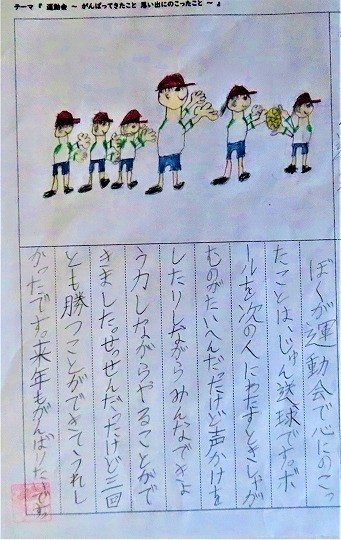 テーマ『 運動会 ～ がんばってきたこと 思い出にのこったこと ～ 』
ぼくが運動会で心にのこっ
たことは、じゅん送球です。ボ
ールを次の人にわたすときしゃが
むのがたいへんだったけど声かけを
したりしながらみんなできょ
う力しながらやることがで
きました。せっせんだったけど三回
とも勝つことができてうれし
かったです。来年もがんばりたいです。